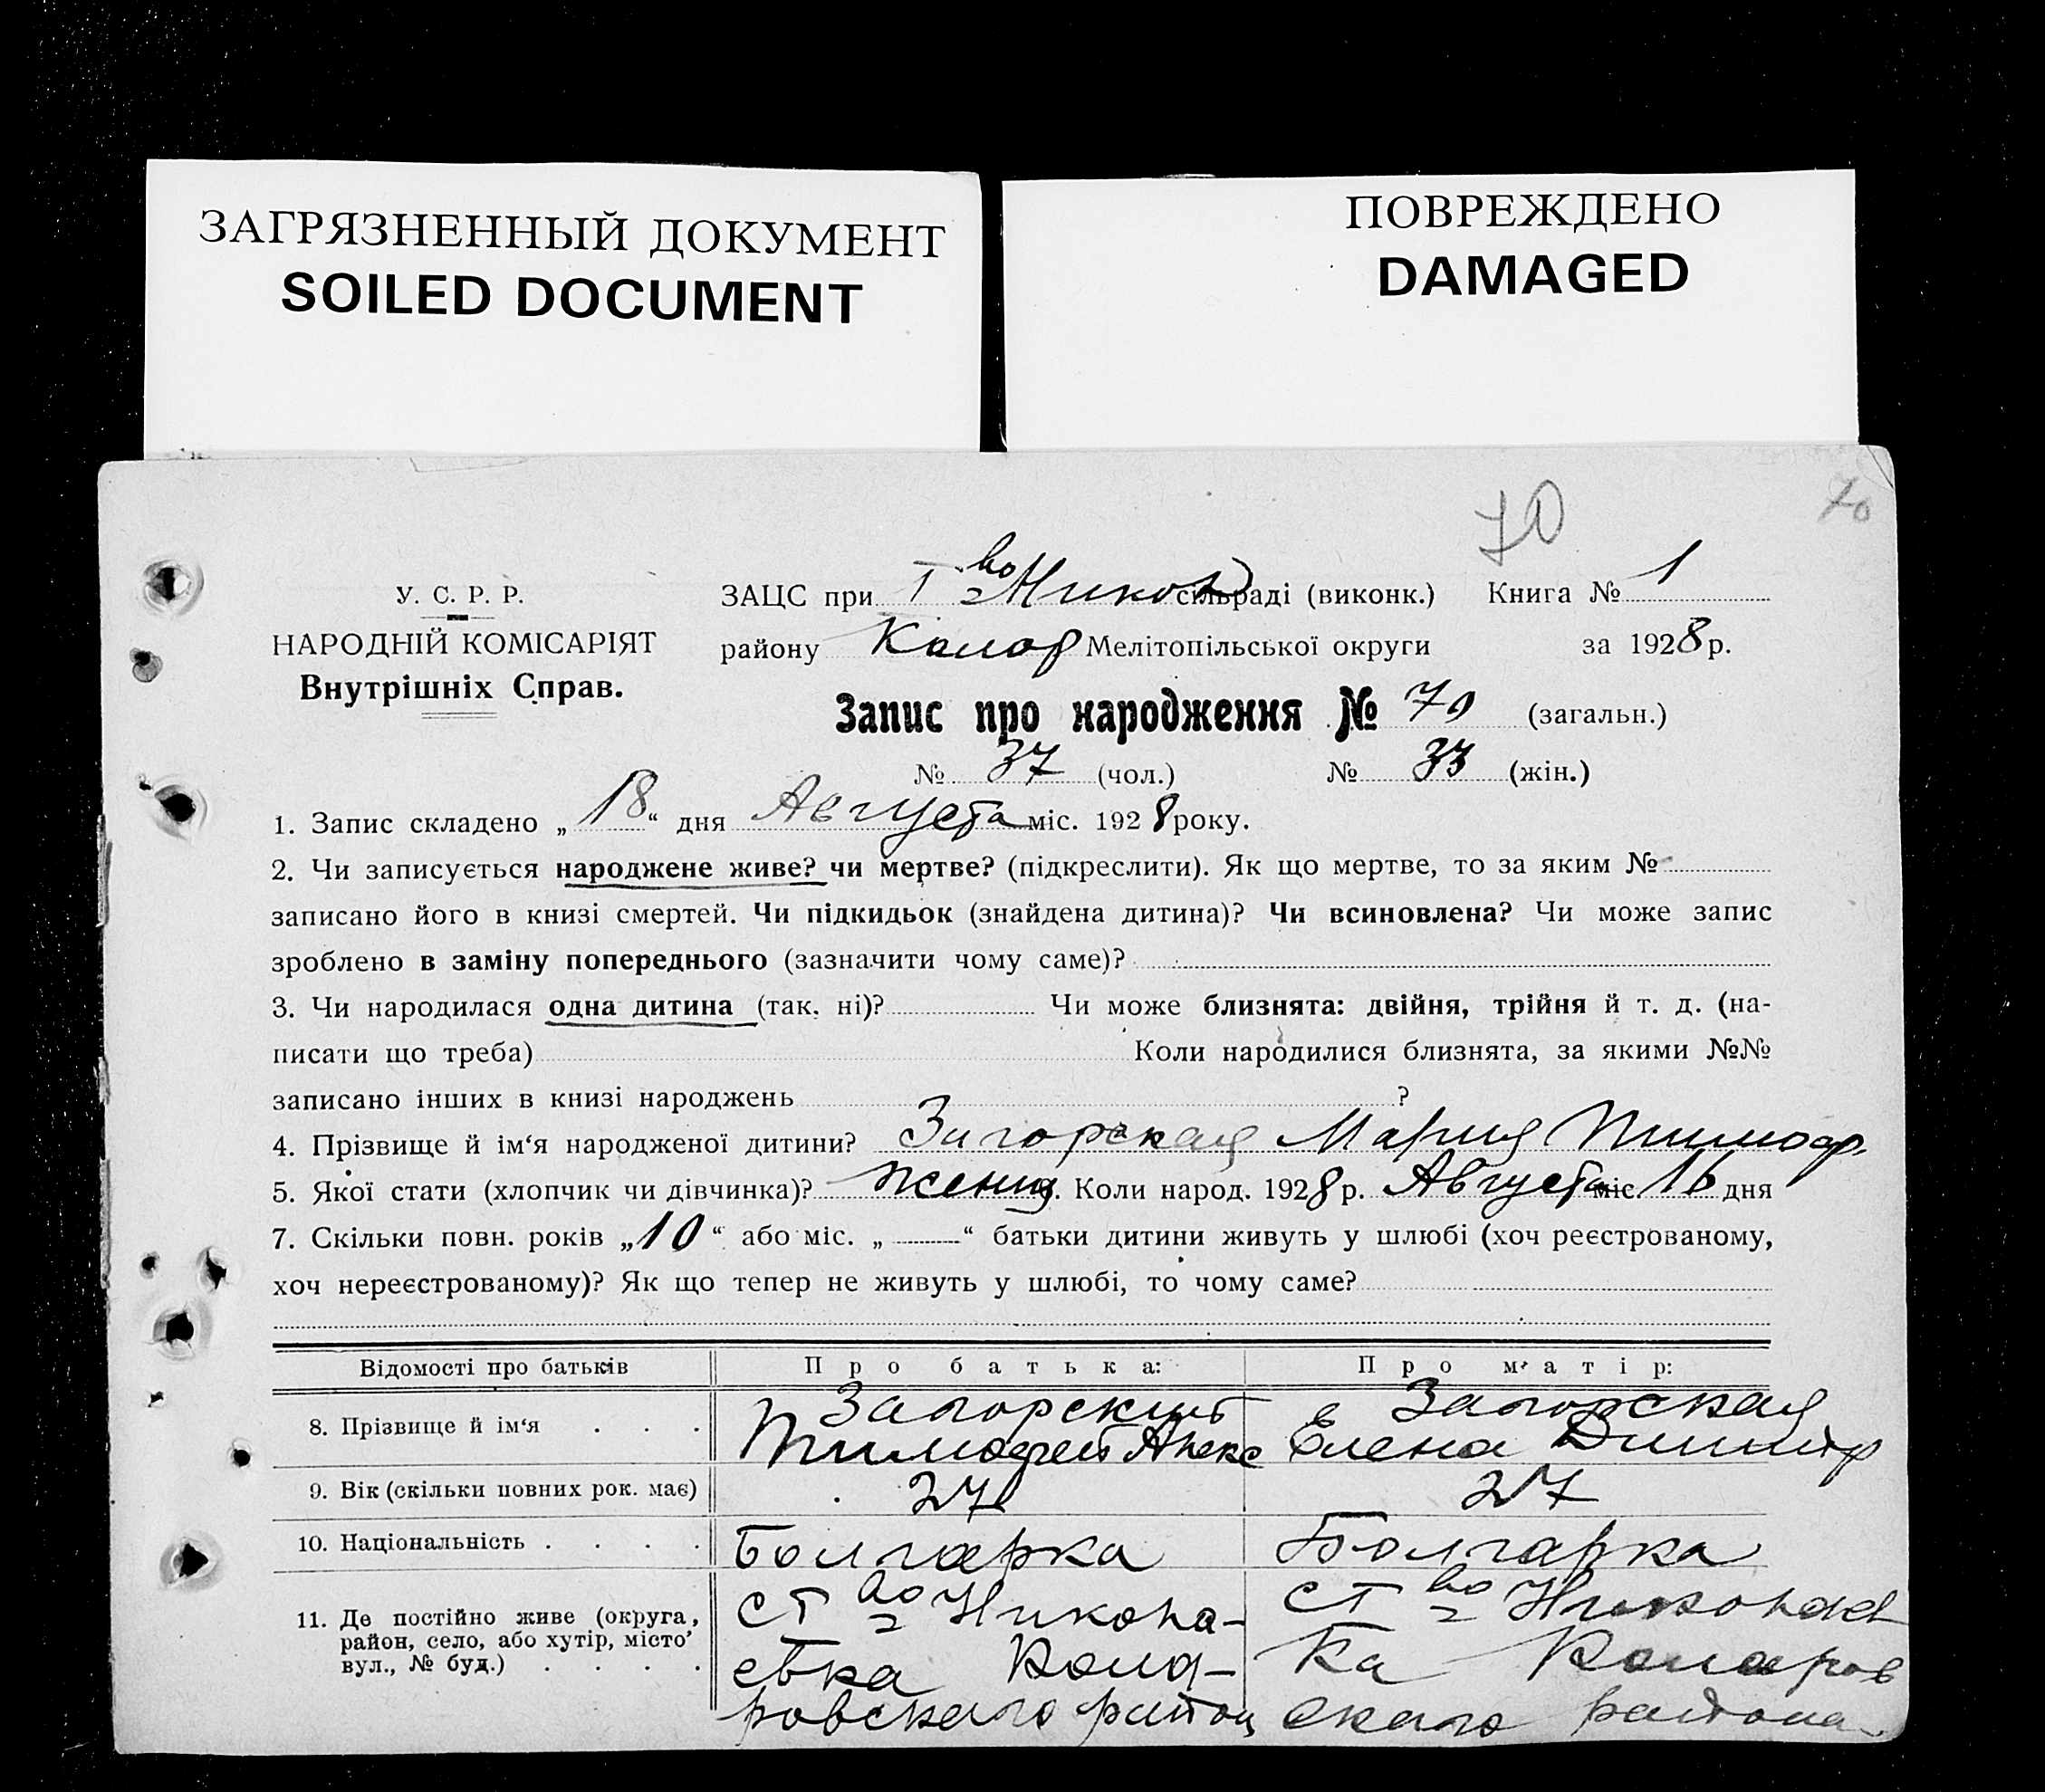 ЗАГРЯЗНЕННЫЙ ДОКУМЕНТ
SOILED DOCUMENT
ПОВРЕЖДЕНО
DAMAGED
70
70
У. С. Р. Р.
НАРОДНІЙ КОМІСАРІЯТ
Внутрішніх Справ.
ЗАЦС при сільраді (виконк.) Книга № 1
району Колар Мелітопільської округи за 1928 р.
Запис про народження № 70 (загальн.)
№ 37 (чол.) № 33 (жін.)
1. Запис складено „18“ дня Августа міс. 1928 року.
2. Чи записується народжене живе? чи мертве? (підкреслити). Як що мертве, то за яким №
записано його в книзі смертей. Чи підкидьок (знайдена дитина)? Чи всиновлена? Чи може запис
зроблено в заміну попереднього (зазначити чому саме)?
3. Чи народилася одна дитина (так, ні)? Чи може близнята: двійня, трійня й т. д. (на-
писати що треба) Коли народилися близнята, за якими №№
записано інших в книзі народжень ?
4. Прізвище й ім‘я народженої дитини? Загорская Мария Тимоф.
5. Якої стати (хлопчик чи дівчинка)? Коли народ. 1928 р. Августа міс. 16 дня
7. Скільки повн. років „10“ або міс. „ “ батьки дитини живуть у шлюбі (хоч реєстрованому,
хоч нереєстрованому)? Як що тепер не живуть у шлюбі, то чому саме?
Відомості про батьків Про батька: Про матір:
8. Прізвище й ім‘я . . . Загорский Загорская
Тимофей Алекс Елена Димитр
9. Вік (скільки повних рок. має) 27 27
10. Національність . . . . Болгарка Болгарка
11. Де постійно живе (округа, район, село, або хутір, місто’ вул., № буд.) . . . .
ст во 2 Никола- ст во 2 Николаев
евка Кола- ка Коларов
ровского район ского района